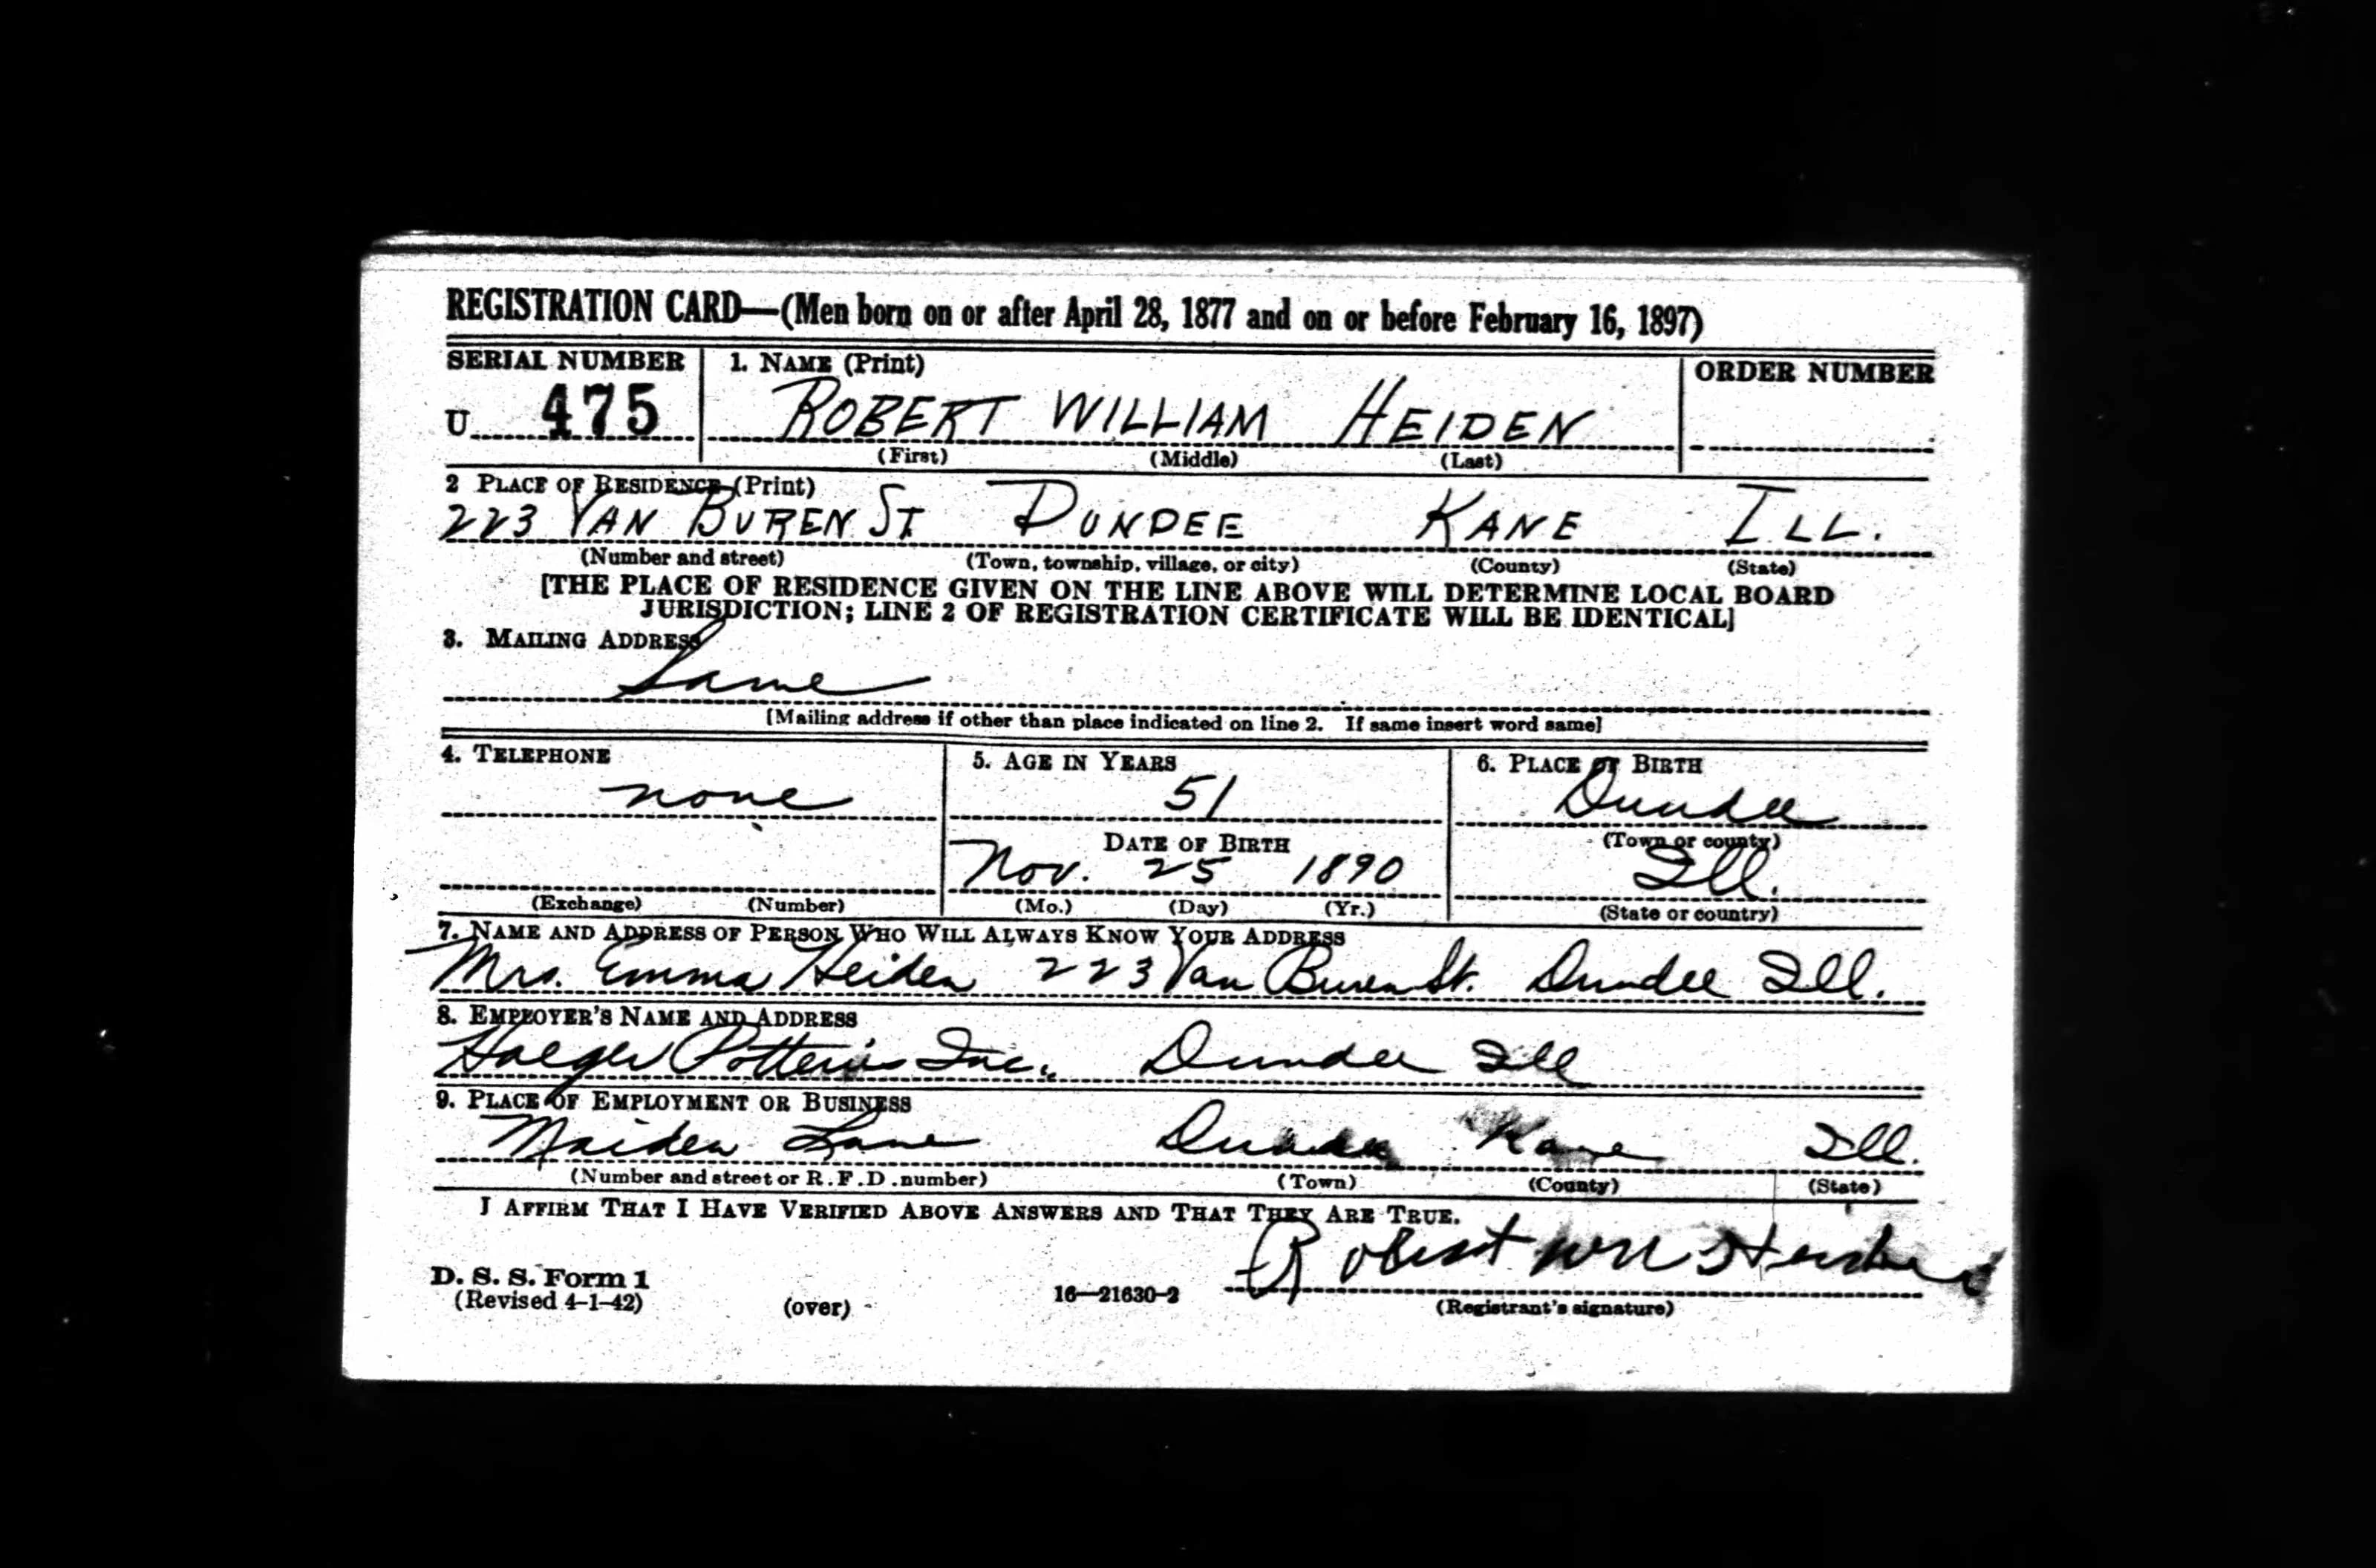 REGISTRATION CARD—(Men born on or after April 28, 1877 and on or before February 16, 1897)
SERIAL NUMBER 1. NAME (Print) ORDER NUMBER
U 475 ROBERT WILLIAM HEIDEN
(First) (Middle) (Last)
2 PLACE OF RESIDENCE (Print)
223 VAN BUREN ST DUNDEE KANE ILL.
(Number and street) (Town, township, village, or city) (County) (State)
[THE PLACE OF RESIDENCE GIVEN ON THE LINE ABOVE WILL DETERMINE LOCAL BOARD
JURISDICTION; LINE 2 OF REGISTRATION CERTIFICATE WILL BE IDENTICAL]
3. MAILING ADDRESS
Same
[Mailing address if other than place indicated on line 2. If same insert word same]
4. TELEPHONE 5. AGE IN YEARS 6. PLACE OF BIRTH
none 51 Dundee
DATE OF BIRTH (Town or county)
Nov. 25 1890 Ill.
(Exchange) (Number) (Mo.) (Day) (Yr.) (State or country)
7. NAME AND ADDRESS OF PERSON WHO WILL ALWAYS KNOW YOUR ADDRESS
Mrs. Emma Heiden 223 Van Buren St. Dundee Ill.
8. EMPLOYER'S NAME AND ADDRESS
Haeger Potteries Inc. Dundee Ill
9. PLACE OF EMPLOYMENT OR BUSINESS
Maiden Lane Dundee Kane Ill.
(Number and street or R. F. D. number) (Town) (County) (State)
I AFFIRM THAT I HAVE VERIFIED ABOVE ANSWERS AND THAT THEY ARE TRUE.
Robert Wm Heiden
D. S. S. Form 1
(Revised 4-1-42) (over) 16—21630-2 (Registrant's signature)